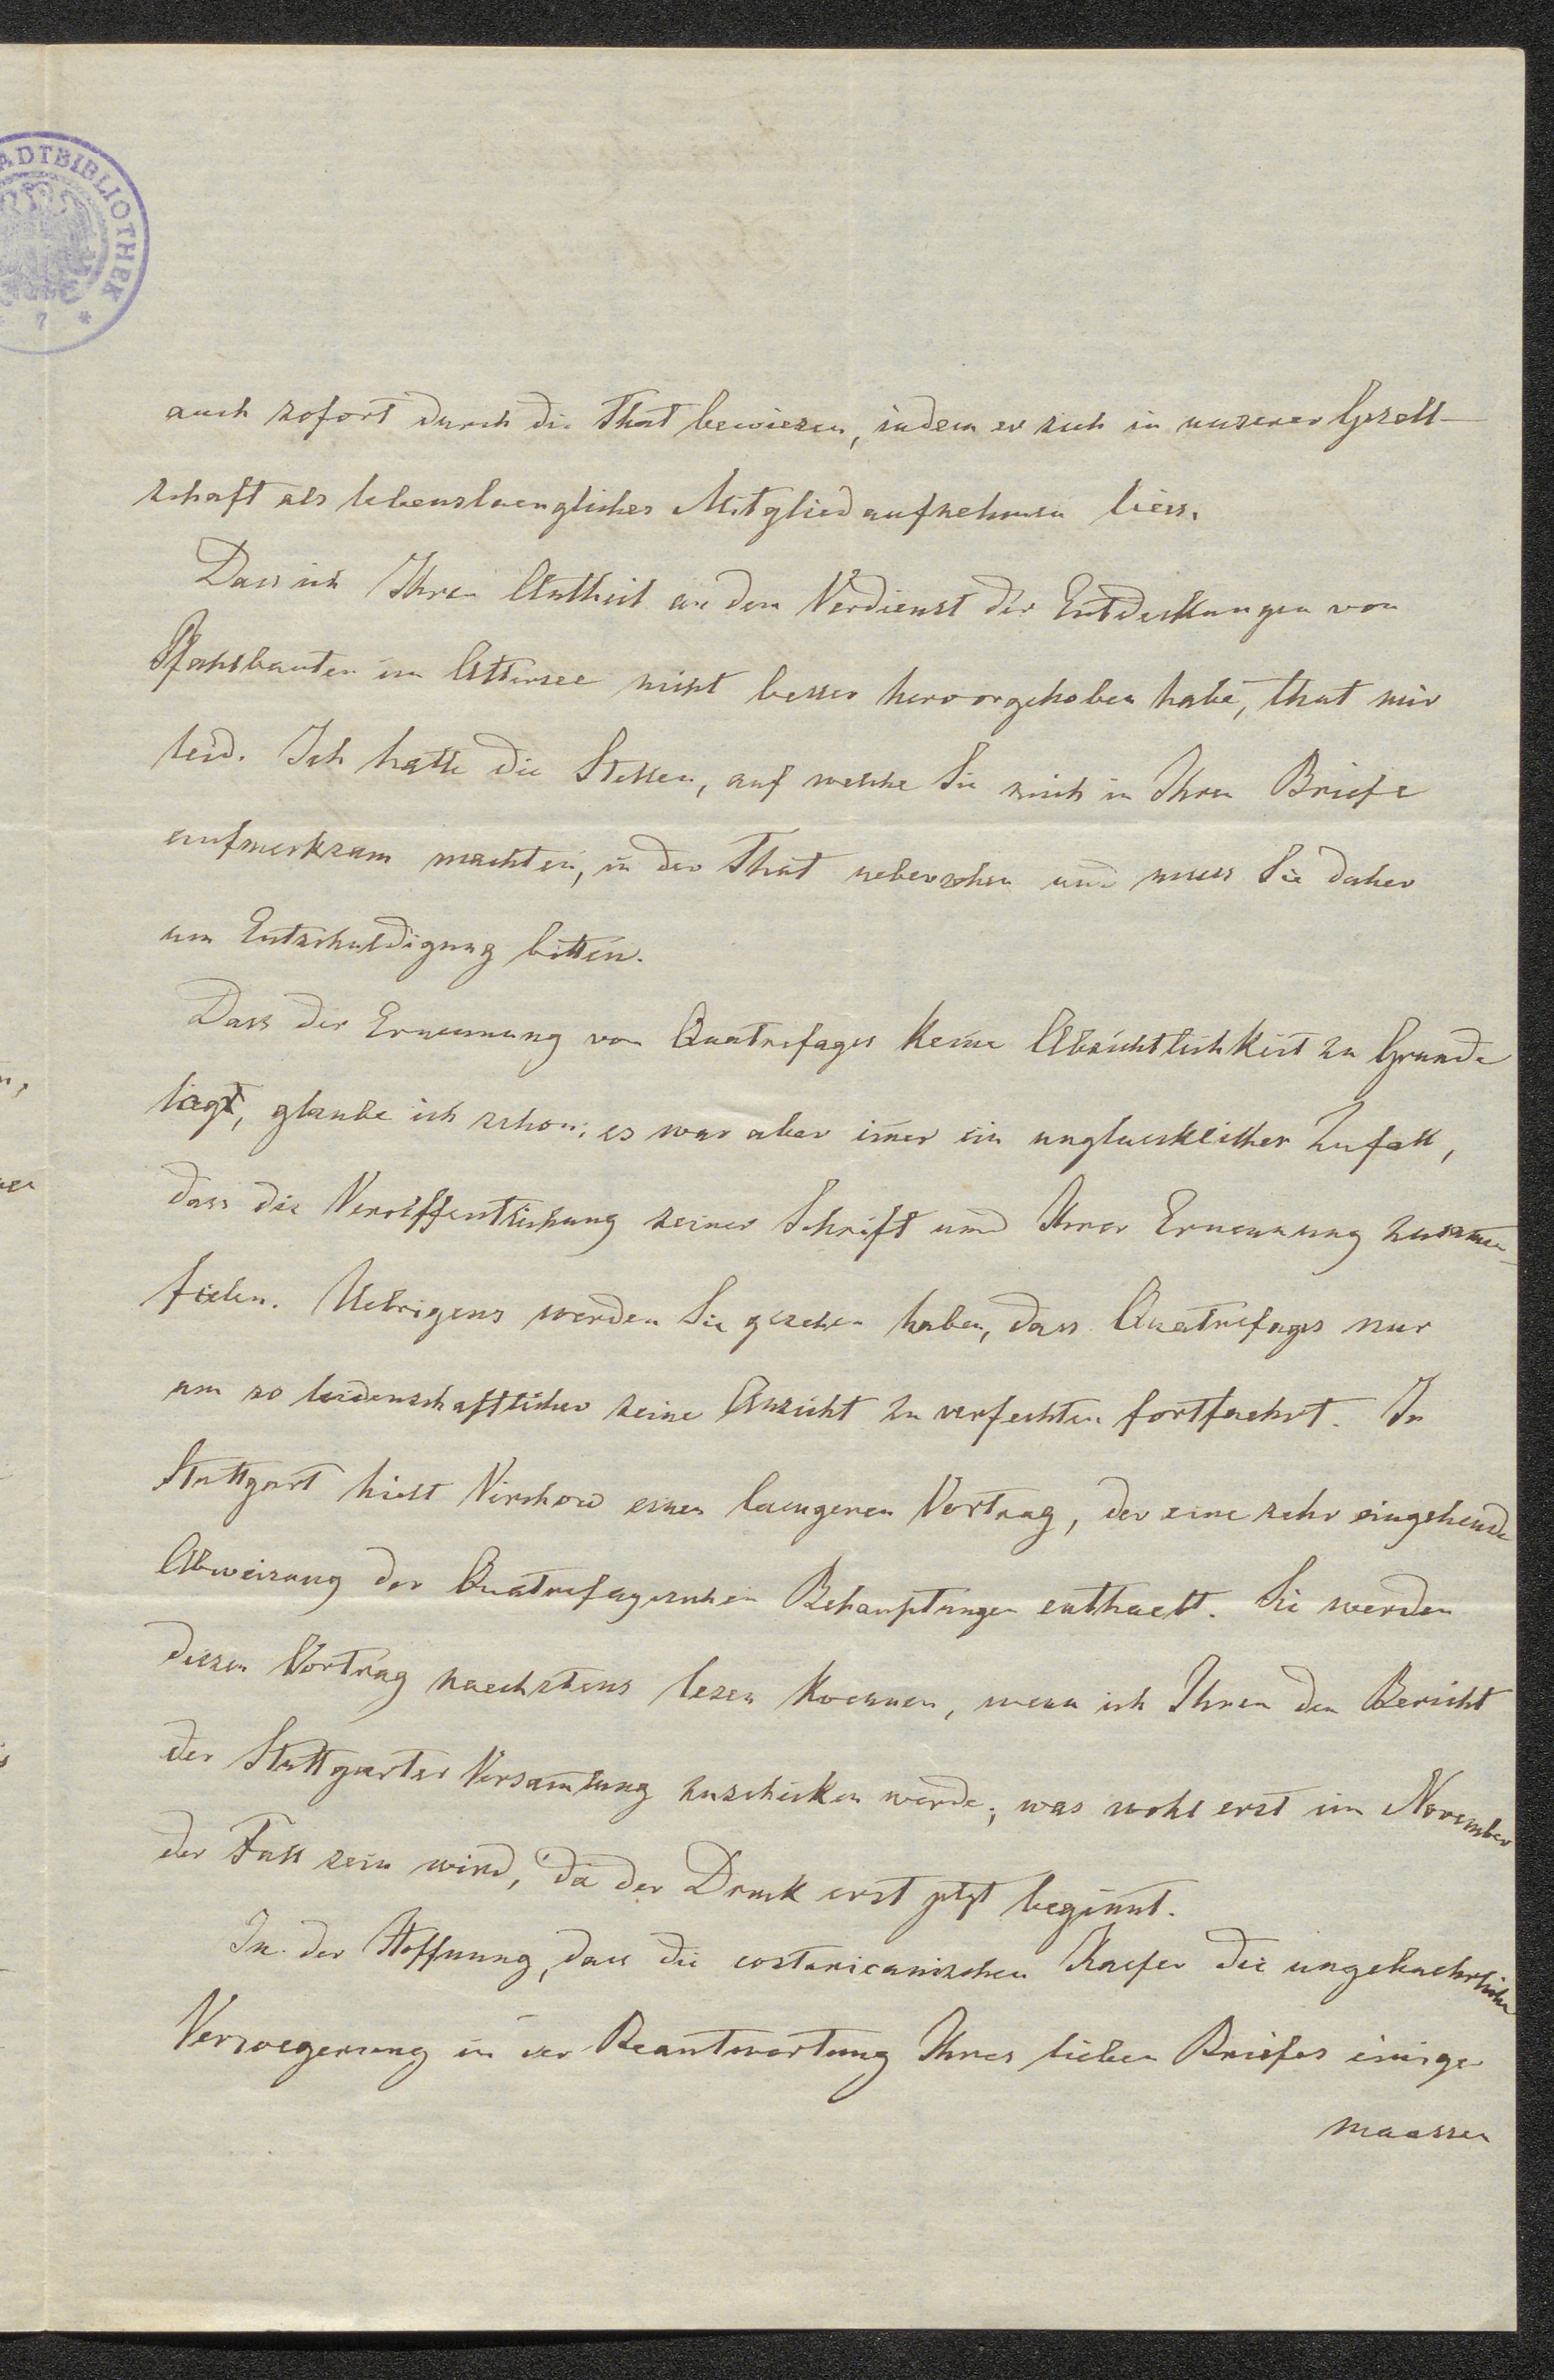 ADTBIBLIOTHEK
* 7 *
auch sofort durch die That bewiesen, indem er sich in unserer Gesell-
schaft als lebenslaengliches Mitglied aufnehmen liess.
Dass ich Ihren Antheil an dem Verdienst der Entdeckungen von
Pfahlbauten im Attersee nicht besser hervorgehoben habe, that mir
leid. Ich hatte die Stellen, auf welche Sie mich in Ihrem Briefe
aufmerksam machten, in der That uebersehen und muss Sie daher
um Entschuldigung bitten.
Dass der Ernennung von Quatrefages keine Absichtlichkeit zu Grunde
liegt, glaube ich schon; es war aber im̅er ein ungluecklicher Zufall,
dass die Veröffentlichung seiner Schrift und Ihrer Ernennung zusam̅en-
fielen. Uebrigens werden Sie gesehen haben, dass Quatrefages nur
um so leidenschaftlicher seine Ansicht zu verfechten fortfaehrt. In
Stuttgart hielt Virchow einen laengeren Vortrag, der eine sehr eingehende
Abweisung der Quatrefagesschen Behauptungen enthaelt. Sie werden
diesen Vortrag naechstens lesen koennen, wenn ich Ihnen den Bericht
der Stuttgarter Versam̅lung zuschicken werde; was wohl erst im November
der Fall sein wird, da der Druck erst jetzt beginnt.
In der Hoffnung, dass die costaricanischen Kaefer die ungebuehrliche
Verzoegerung in der Beantwortung Ihres lieben Briefes einiger
maassen